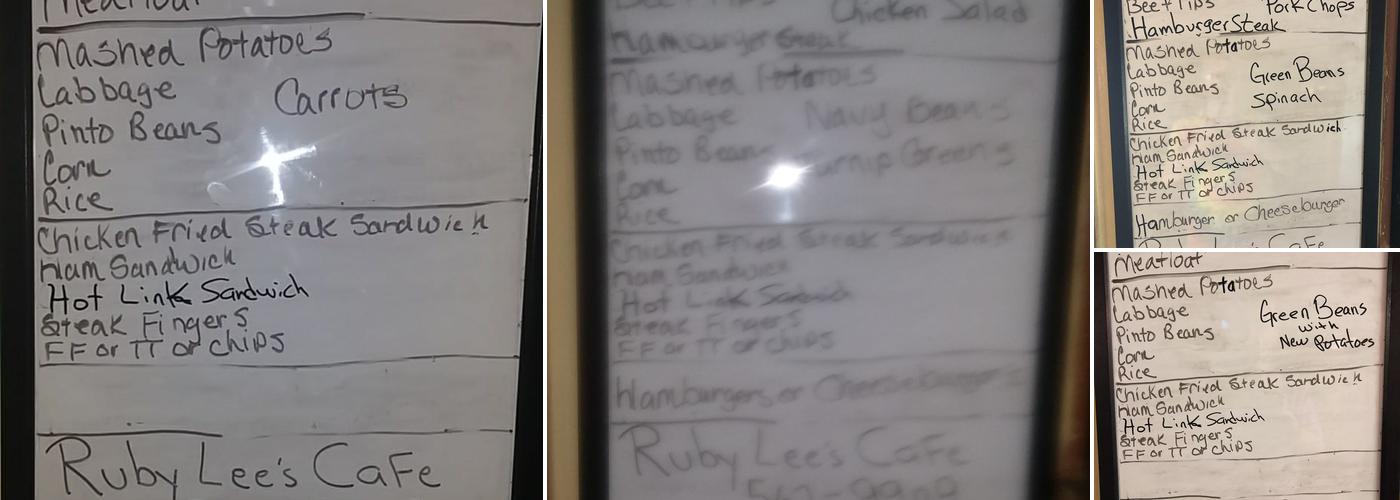 Meatloaf
Mashed Potatoes
Cabbage
Carrots
Pinto Beans
Corn
Rice
Chicken Fried Steak Sandwich
Ham Sandwich
Hot Link Sandwich
Steak Fingers
FF or TT or Chips
Ruby Lee's CaFe
Beef Tips
Chicken Salad
Hamburger Steak
Mashed Potatoes
Cabbage
Navy Beans
Pinto Beans
Turnip Greens
Corn
Rice
Chicken Fried Steak Sandwich
Ham Sandwich
Hot Link Sandwich
Steak Fingers
FF or TT or Chips
Hamburgers or Cheeseburgers
Ruby Lee's CaFe
Beef Tips
Pork Chops
Hamburger Steak
Mashed Potatoes
Cabbage
Green Beans
Pinto Beans
Spinach
Corn
Rice
Chicken Fried Steak Sandwich
Ham Sandwich
Hot Link Sandwich
Steak Fingers
FF or TT or Chips
Hamburger or Cheeseburger
Ruby Lee's CaFe
Meatloaf
Mashed Potatoes
Cabbage
Green Beans
with
Pinto Beans
New Potatoes
Corn
Rice
Chicken Fried Steak Sandwich
Ham Sandwich
Hot Link Sandwich
Steak Fingers
FF or TT or Chips